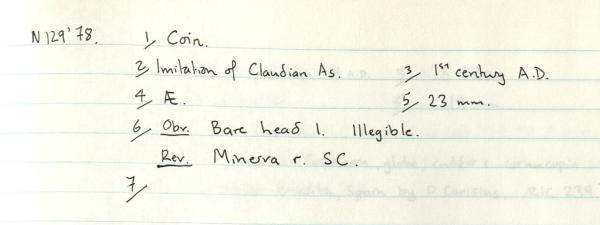 N129'78. 1/ Coin.
2/ Imitation of Claudian As. 3/ 1st century A.D.
4/ Æ. 5/ 23 mm.
6/ Obv. Bare head l. Illegible.
Rev. Minerva r. SC.
7/